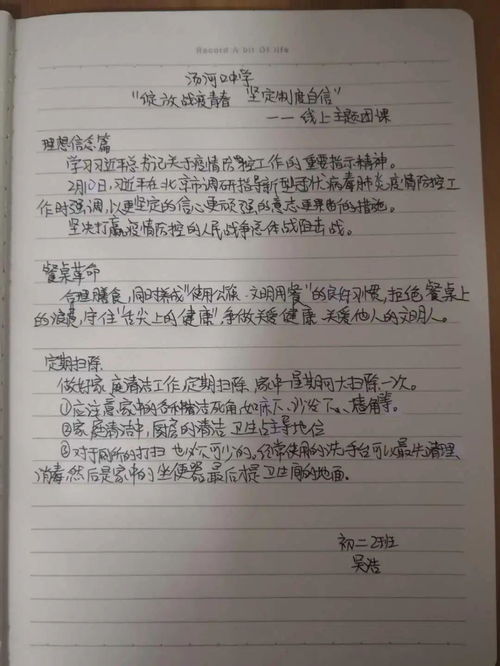 Record A bit Of life
汤河口中学
“绽放战疫青春 坚定制度自信”
——线上主题团课
理想信念篇
学习习近平总书记关于疫情防控工作的重要指示精神。
2月10日,习近平在北京市调研指导新型冠状病毒肺炎疫情防控工
作时强调,以更坚定的信心更顽强的意志更果断的措施。
坚决打赢疫情防控的人民战争总体战阻击战。
餐桌革命
合理膳食,同时养成“使用公筷·文明用餐”的良好习惯,拒绝餐桌上
的浪费,守住“舌尖上的健康”,争做关爱健康、关爱他人的文明人。
定期扫除
做好家庭清洁工作,定期扫除,家中一星期可大扫除一次。
①应注意家中的各种清洁死角,如床下、沙发下、墙角等。
②家庭清洁中,厨房的清洁卫生占主导地位
③对于厕所的打扫也必不可少的。经常使用的洗手台可以最先清理、
消毒,然后是家中的坐便器,最后才是卫生间的地面。
初二2班
吴浩